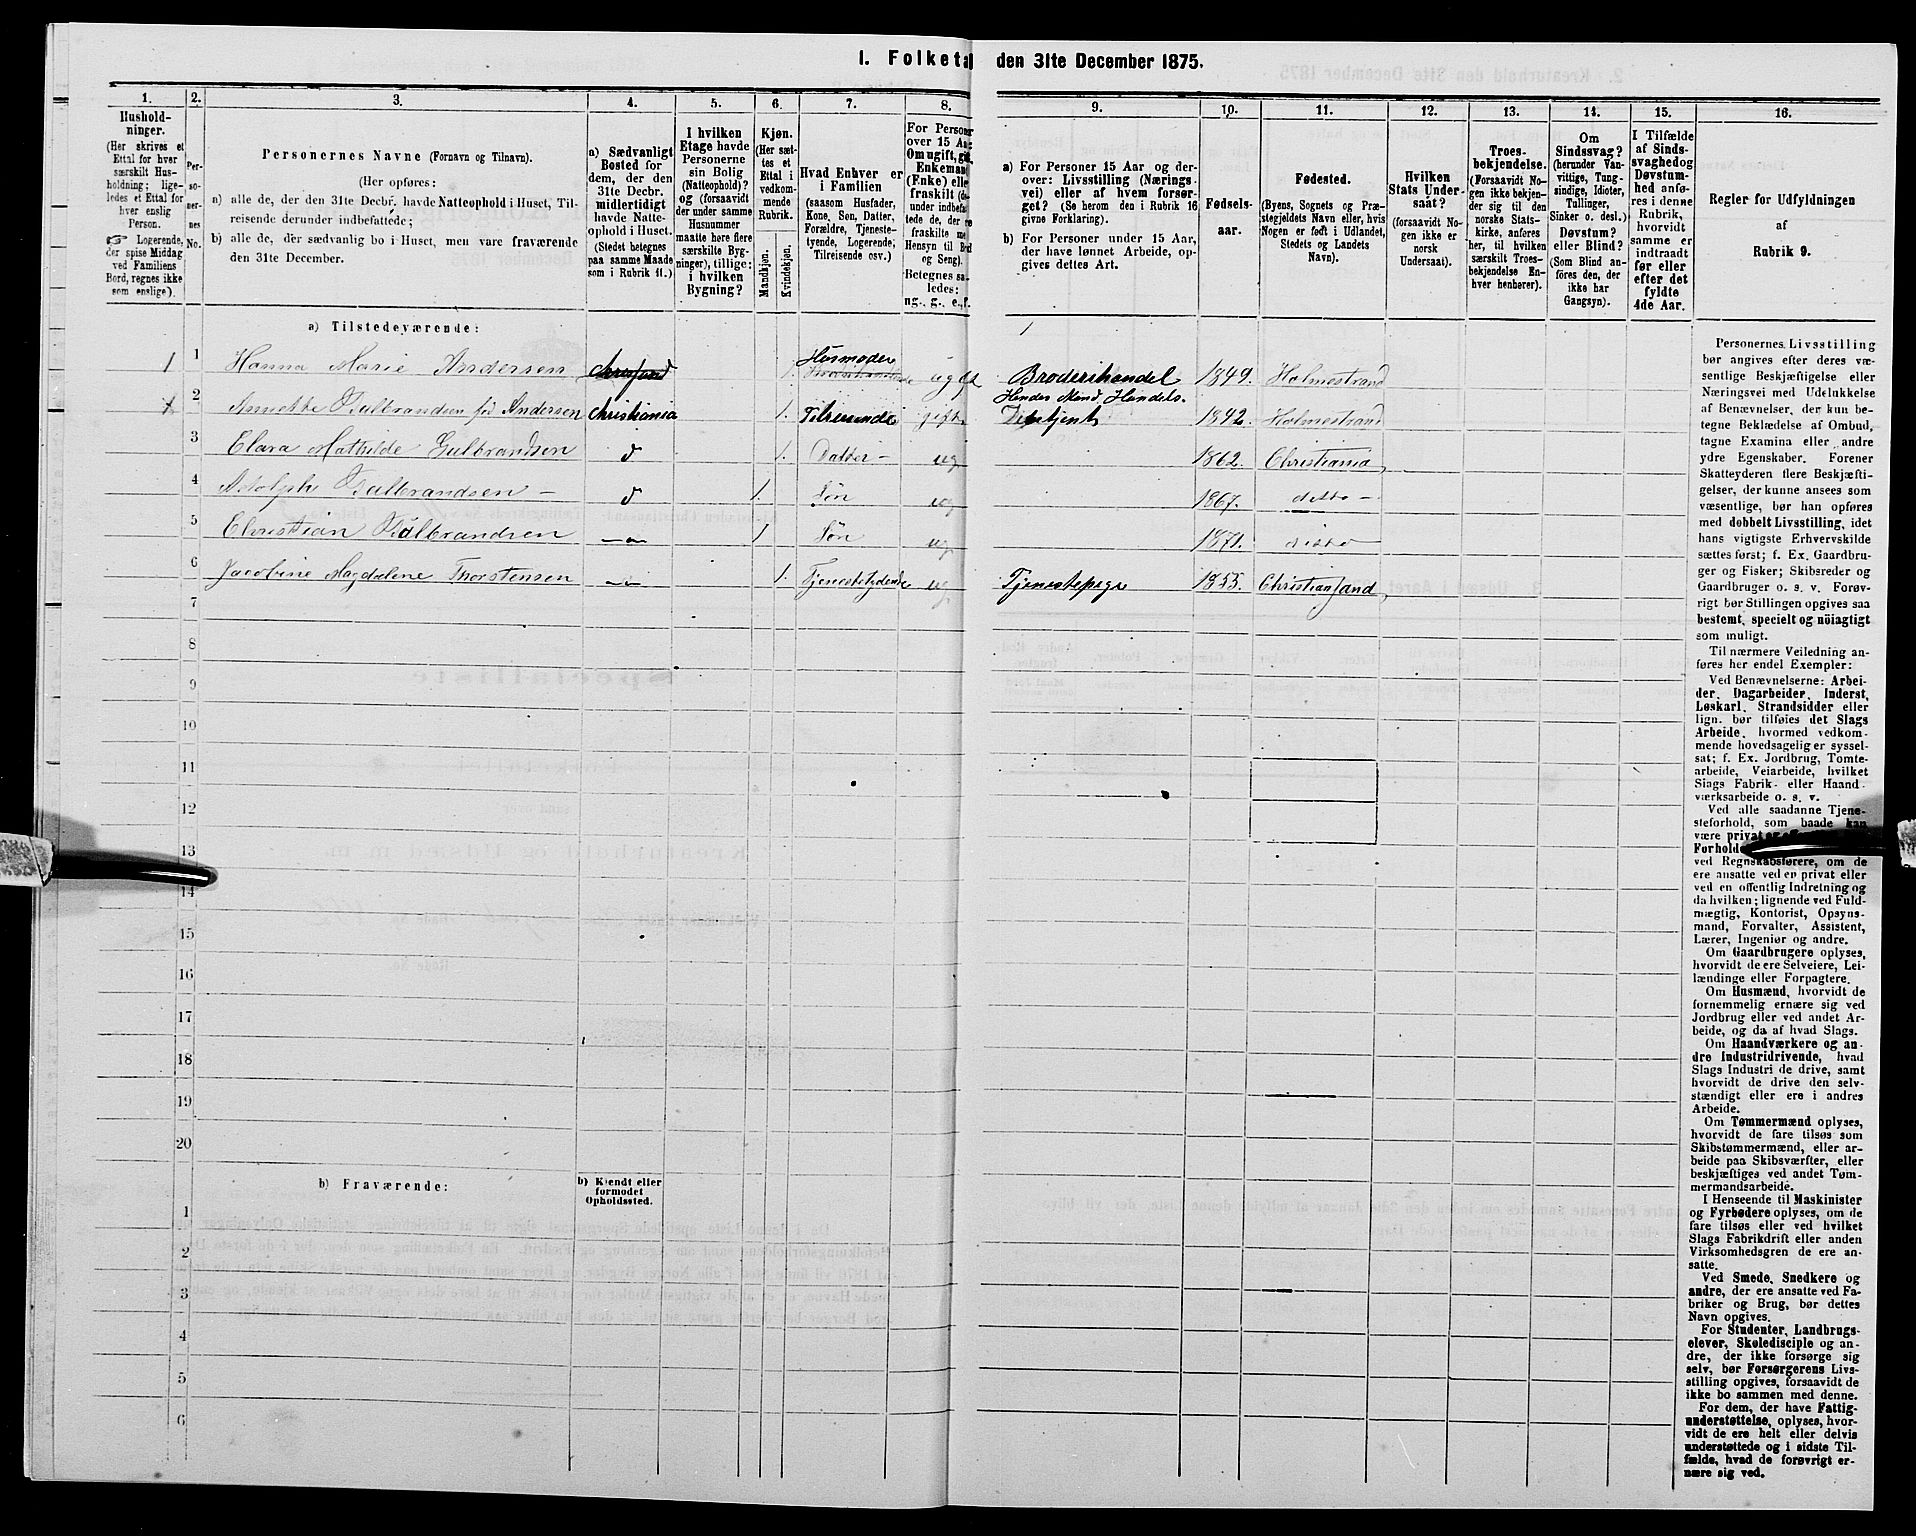 1. Folketal den 31te December 1875.
1. 2. 3. 4. 5. 6. 7. 8. 9. 10. 11. 12. 13. 14. 15. 16.
Hushold-
ninger.
(Her skrives et
Ettal for hver
særskilt Hus-
holdning; lige-
ledes et Ettal for
hver enslig
Person.
☞ Logerende,
der spise Middag
ved Familiens
Bord, regnes ikke
som enslige).
Per-
so-
ner-
nes
No.
Personernes Navne (Fornavn og Tilnavn).
(Her opføres:
a) alle de, der den 31te Decbr. havde Natteophold i Huset, Til-
reisende derunder indbefattede;
b) alle de, der sædvanlig bo i Huset, men vare fraværende
den 31te December.
a) Sædvanligt
Bosted for
dem, der den
31te Decbr.
midlertidigt
havde Natte-
ophold i Huset.
(Stedet betegnes
paa samme Maade
som i Rubrik 11.)
I hvilken
Etage havde
Personerne
sin Bolig
(Natteophold)?
og (forsaavidt
der under samme
Husnummer
maatte here flere
særskilte Byg-
ninger), tillige:
i hvilken
Bygning?
Kjøn.
(Her sæt-
tes et
Ettal i
vedkom-
mende
Rubrik.
Mandkjøn.
Kvindekjøn.
Hvad Enhver er
i Familien
(saasom Husfader,
Kone, Søn, Datter,
Forældre, Tjeneste-
tyende, Logerende,
Tilreisende osv.)
For Personer
over 15 Aar
Om ugift, gift
Enkemand
(Enke) eller
fraskilt
under indbefat-
tede de, der ere
fraskilte med
Hensyn til Bord
og Seng).
Betegnes saa-
ledes:
ug., g., e., f.
a) For Personer 15 Aar og der-
over: Livsstilling (Nærings-
vei) eller af hvem forsør-
get? (Se herom den i Rubrik 16
givne Forklaring.)
b) For Personer under 15 Aar,
der have lønnet Arbeide, op-
gives dettes Art.
Fødsels-
aar.
Fødested.
(Byens, Sognets og Præ-
stegjeldets Navn eller, hvis
Nogen er født i Udlandet,
Stedets og Landets
Navn).
Hvilken
Stats Under-
saat?
(forsaavidt No-
gen ikke er
norsk
Undersaat).
Troes-
bekjendelse.
(Forsaavidt No-
gen ikke bekjen-
der sig til den
norske Stats-
kirke, anføres
her, til hvilken
særskilt Troes-
bekjendelse En-
hver henhører).
Om
Sindssvag?
(herunder Van-
vittige, Tung-
sindige, Idioter,
Tullinger,
Sinker o. desl.)
Døvstum?
eller Blind?
(Som Blind an-
føres den, der
ikke har
Gangsyn).
I Tilfælde
af Sinds-
svaghed og
Døvstum-
hed anfø-
res i denne
Rubrik,
hvorvidt
samme er
indtraadt
før eller
efter det
fyldte
4de Aar.
Regler for Udfyldningen
af
Rubrik 9.
a) Tilstedeværende:
1 1 Hanna Marie Andersen 1. Husmoder ugift Broderihandel 1849. Holmestrand
Hendes Mand, Handels-
1 2 Annette Gulbrandsen fød Andersen Christiania 1. Tilreisende gift betjent 1842. Holmestrand
3 Clara Mathilde Gulbrandsen d 1. Datter - ug 1862. Christiania
4 Adolph Gulbrandsen - d 1. Søn ug 1867. ditto -
5 Christian Gulbrandsen 1 Søn ug 1871. ditto
6 Jacobine Magdalene Thorstensen 1. Tjenestetyende ug Tjenestepige 1855. Christiansand
7
8
9
10
11
12
13
14
15
16
17
18
19
20
b) Fraværende:
b) Kjendt eller
formodet
Opholdssted.
1
2
3
4
5
6
Personernes Livsstilling
bør angives efter deres væ-
sentlige Beskjæftigelse eller
Næringsvei med Udelukkelse
af Benævnelser, der kun be-
tegne Beklædelse af Ombud,
tagne Examina eller andre
ydre Egenskaber. Forener
Skatteyderen flere Beskjæfti-
gelser, der kunne ansees som
væsentlige, bør han opføres
med dobbelt Livsstilling, idet
hans vigtigste Erhvervskilde
sættes først; f. Ex. Gaardbru-
ger og Fisker; Skibsreder og
Gaardbruger o. s. v. Forøv-
rigt bør Stillingen opgives saa
bestemt, specielt og nöiagtigt
som muligt.
Til nærmere Veiledning an-
føres her endel Exempler:
Ved Benævnelserne: Arbei-
der, Dagarbeider, Inderst,
Løskarl, Strandsidder eller
lign. bør tilføies det Slags
Arbeide, hvormed vedkom-
mende hovedsagelig er syssel-
sat; f. Ex. Jordbrug, Tomte-
arbeide, Veiarbeide, hvilket
Slags Fabrik- eller Haand-
værksarbeide o. s. v.
Ved alle saadanne Tjene-
steforhold, som baade kan
være privat
Forhold
ved Regnskabsførere, om de
ere ansatte ved en privat eller
ved en offentlig Indretning og
da hvilken; lignende ved Fuld-
mægtig, Kontorist, Opsyns-
mand, Forvalter, Assistent,
Lærer, Ingeniør og andre.
Om Gaardbrugere oplyses,
hvorvidt de ere Selveiere, Lei-
lændinge eller Forpagtere.
Om Husmænd, hvorvidt de
fornemmelig ernære sig ved
Jordbrug eller ved andet Ar-
beide, og da af hvad Slags.
Om Haandværkere og an-
dre Industridrivende, hvad
Slags Industri de drive, samt
hvorvidt de drive den selv-
stændigt eller ere i andres
Arbeide.
Om Tømmermænd oplyses,
hvorvidt de fare tilsøs som
Skibstømmermænd, eller ar-
beide paa Skibsværfter, eller
beskjæftiges ved andet Tøm-
mermandsarbeide.
I Henseende til Maskinister
og Fyrbødere oplyses, om de
fare tilsøs eller ved hvilket
Slags Fabrikdrift eller anden
Virksomhedsgren de ere an-
satte.
Ved Smede, Snedkere og
andre, der ere ansatte ved Fa-
briker og Brug, bør dettes
Navn opgives.
For Studenter, Landbrugs-
elever, Skoledisciple og an-
dre, der ikke forsørge sig
selv, bør Forsørgerens Livs-
stilling opgives, forsaavidt de
ikke bo sammen med denne.
For dem, der have Fattig-
understøttelse, oplyses, hvor-
vidt de ere helt eller delvis
understøttede og i sidste Til-
fælde, hvad de forøvrigt er-
nære sig ved.